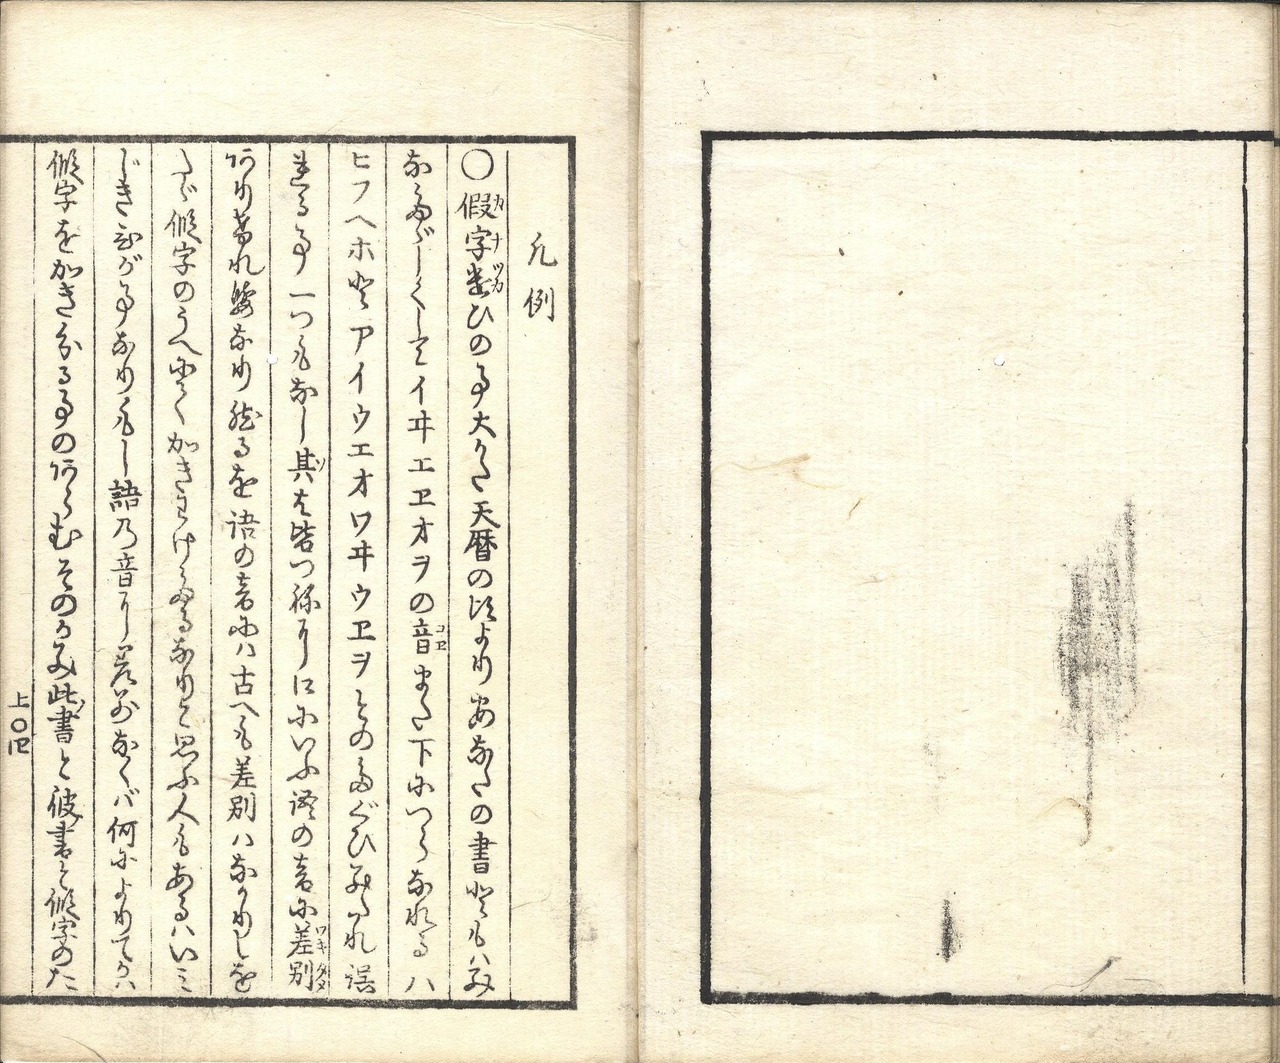 凡例
〇假字遣ひの事大かた天暦の比よりあなたの書どもハみ
なたゞしくしてイヰエヱオヲの音また下につらなれるハ
ヒフヘホとアイウエオワヰウヱヲとのたぐひみだれ誤
れる事一つもなし其は皆つねに口にいふ語の音に差別
ありければなり然るを語の音にハ古へも差別ハなかりしを
たゞ假字のうへにてかきわけたるなりと思ふ人もあるハいミ
じきひが事なりもし語の音に差別なくバ何によりてかハ
假字をかき分る事のあらむそのかみ此書と彼書と假字のた
上〇四